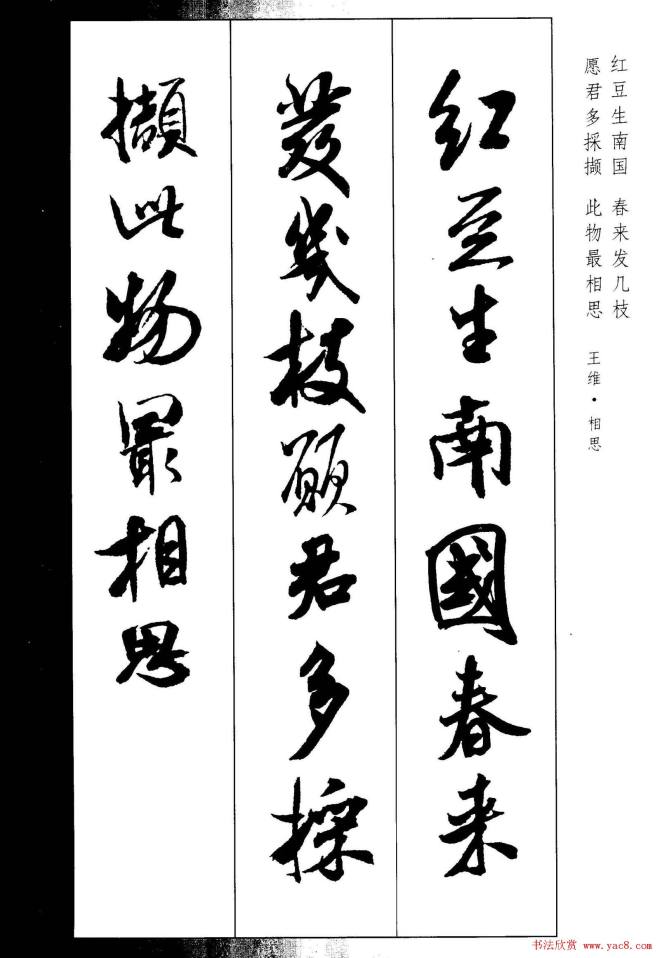 红豆生南国 春来发几枝
愿君多採撷 此物最相思
王维·相思
红豆生南國春来
發幾枝願君多採
擷此物最相思
书法欣赏 www.yac8.com